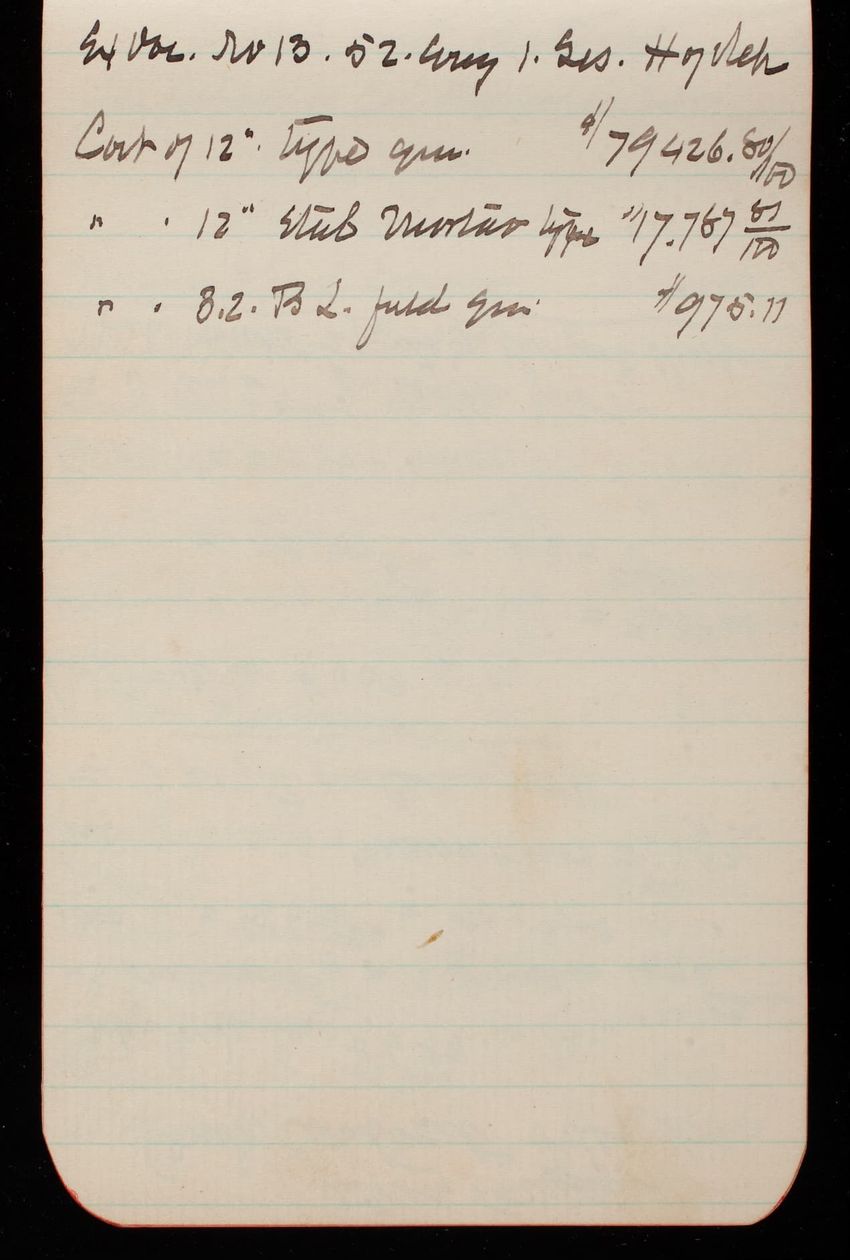 Ex Doc. No 13. 52. Cong 1. Ses. H of Rep
Cost of 12". type gun. $79426.80/100
" " 12" Steel Mortar type $17.767 81/100
" " 3.2. B L. field gun $975.11